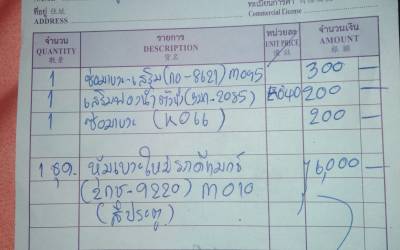 ที่อยู่ 住址
ADDRESS
ทะเบียนการค้า
Commercial License
จำนวน รายการ หน่วยละ จำนวนเงิน
QUANTITY DESCRIPTION UNIT PRICE AMOUNT
數量 貨名 銀額
1 ซ่อมเบาะ-เสริม(กอ-8621) ๓045 300 —
1 เสริมฟองน้ำตัวนั่ง( -2085) 040 200 —
1 ซ่อมเบาะ (K066) 200 —
1 ชุด. หุ้มเบาะใหม่รถตีแมกซ์ 16,000 —
(2กช-9220) ๓010
(สี่ประตู)